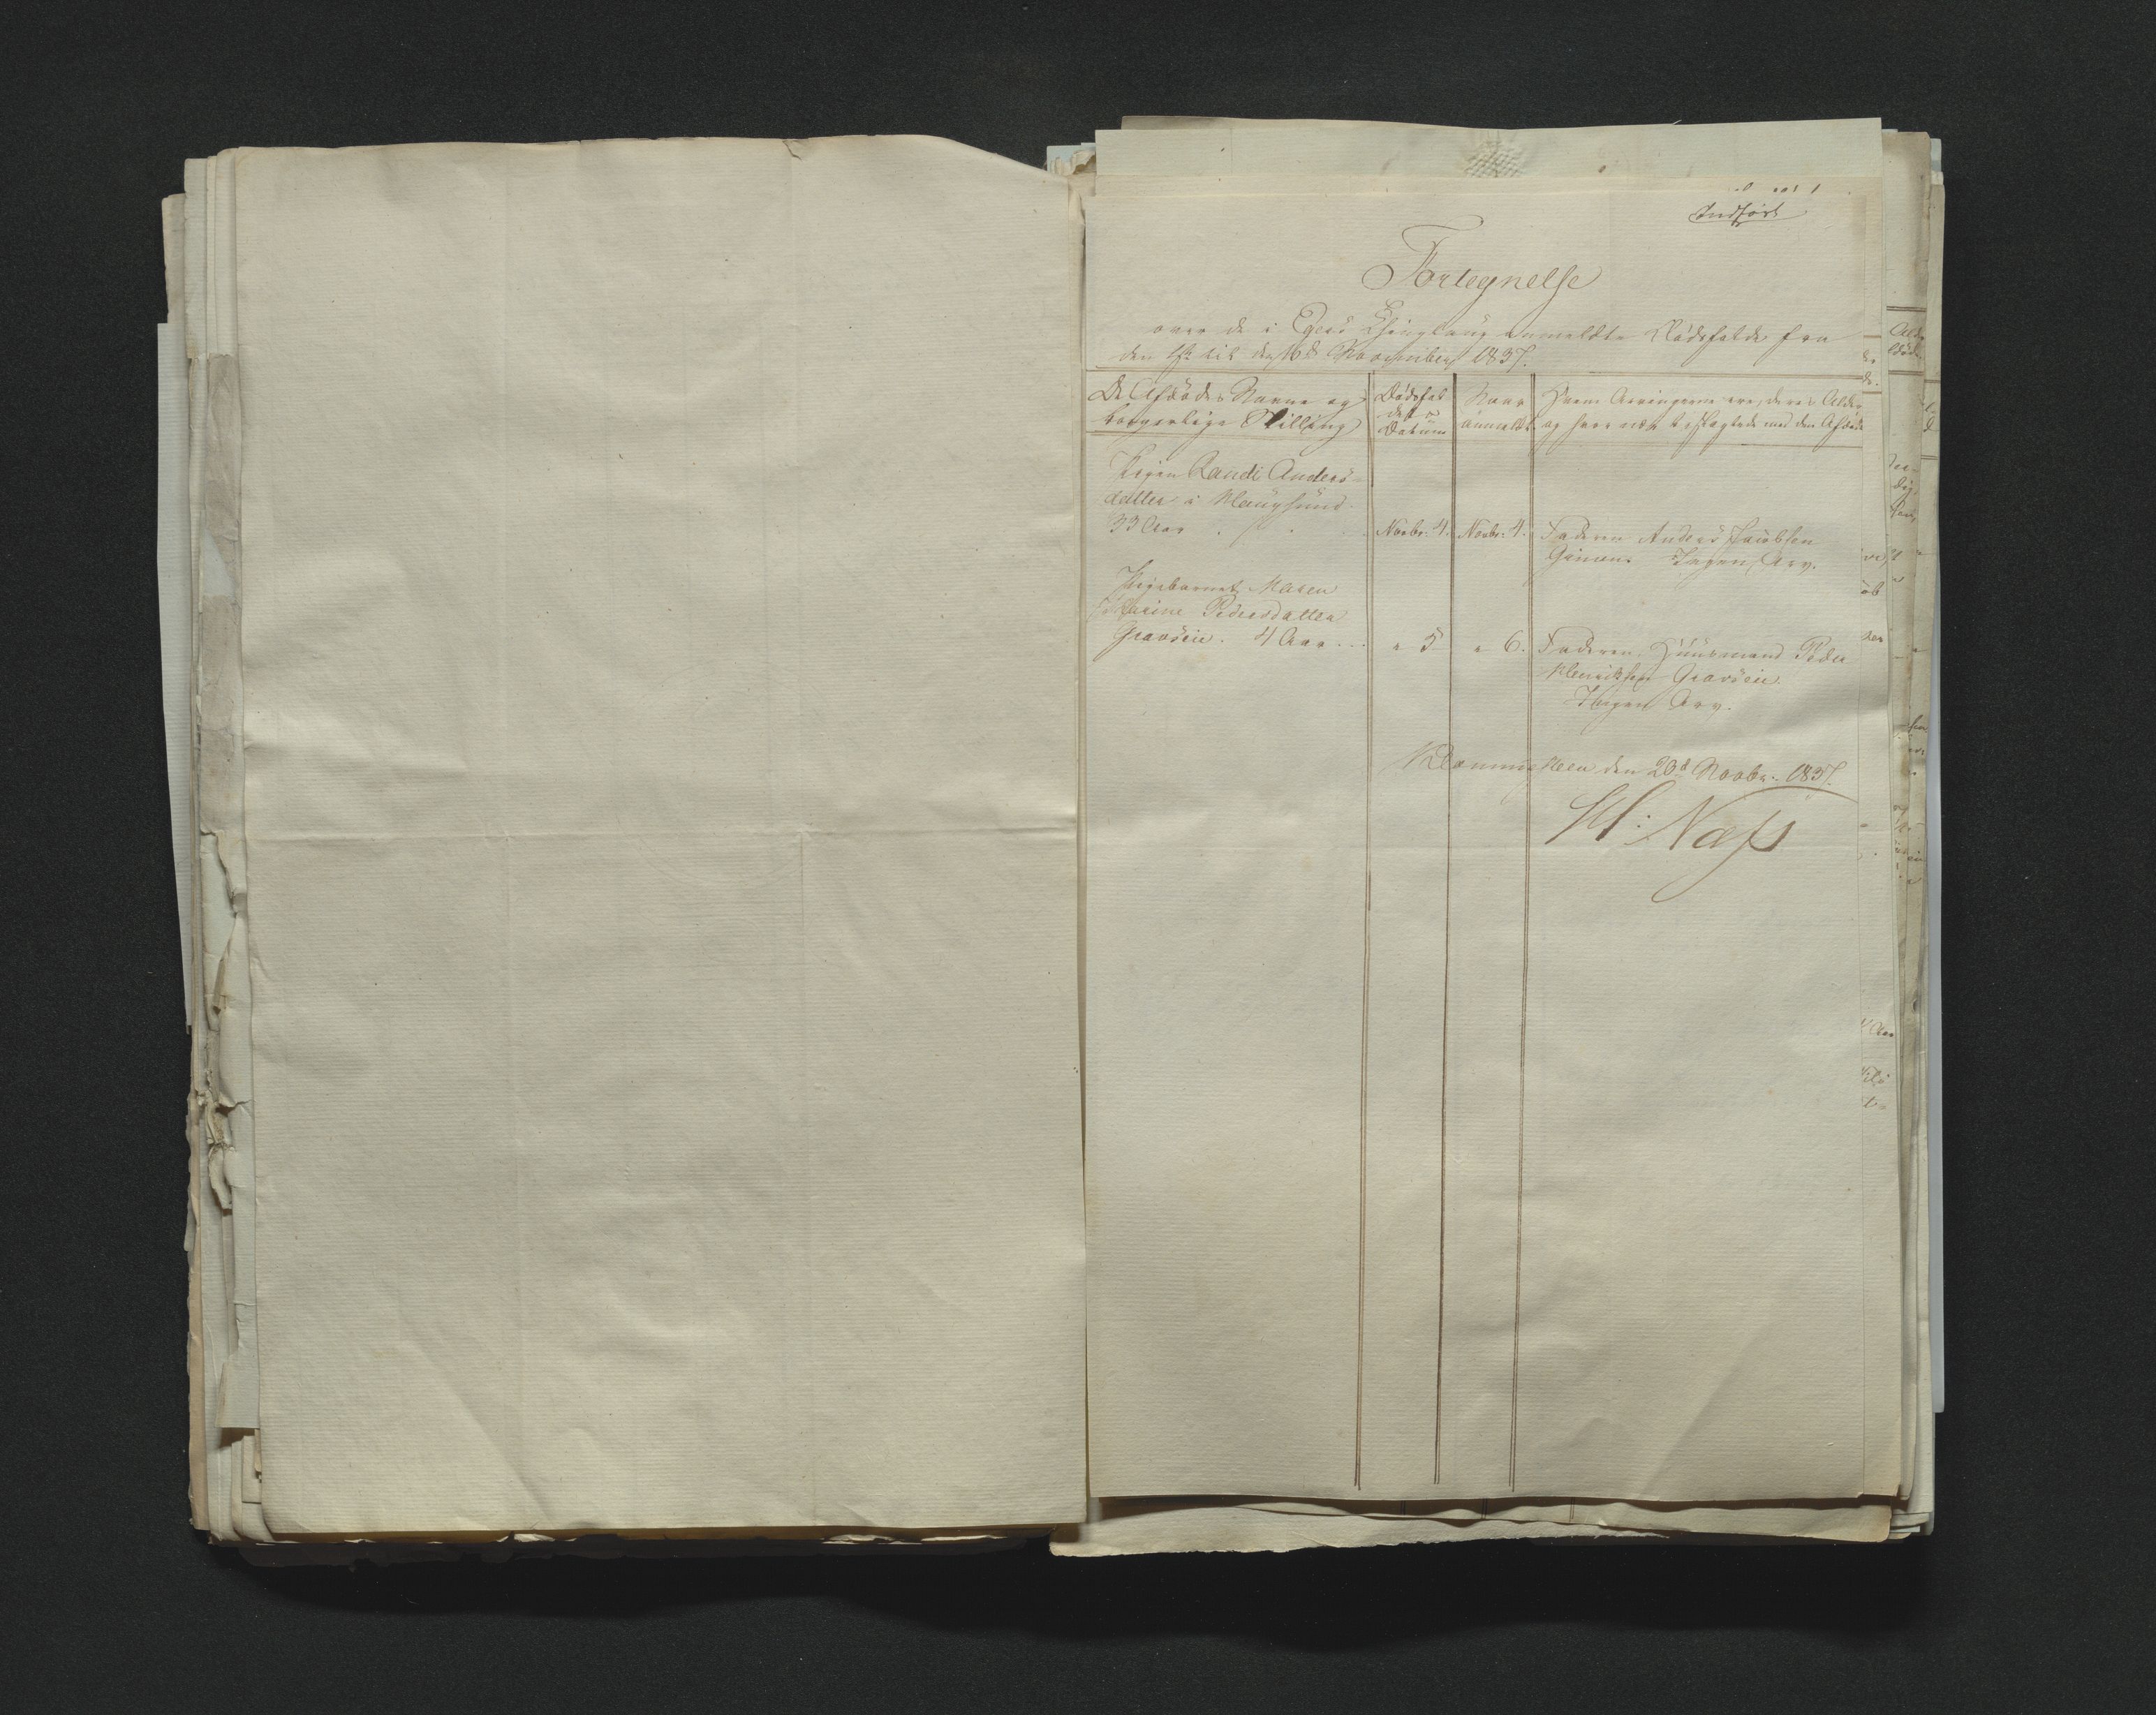 Indført
Fortegnelse
over de i Egers Thinglaug anmeldte Dødsfalde fra
den 1ste til den 16de November 1837.
De Afdødes Navne og
borgerlige Stilling
Dødsfal
dets
Datum
Naar
anmeldt
Hvem Arvingerne ere, deres Alder
og hvor nær beslægtede med den Afdøde
Pigen Randi Anders-
datter i Haugsund
33 Aar
Novbr: 4.
Novbr: 4.
Faderen Anders Jacobsen
Ingen Arv.
Pigebarnet Maren
Karine Pedersdatter
Gravseie. 4 Aar
" 5
" 6.
Faderen Huusmand Peder
Henriksen Gravseie.
Ingen Arv.
den 20d Novbr. 1837.
H: Næss